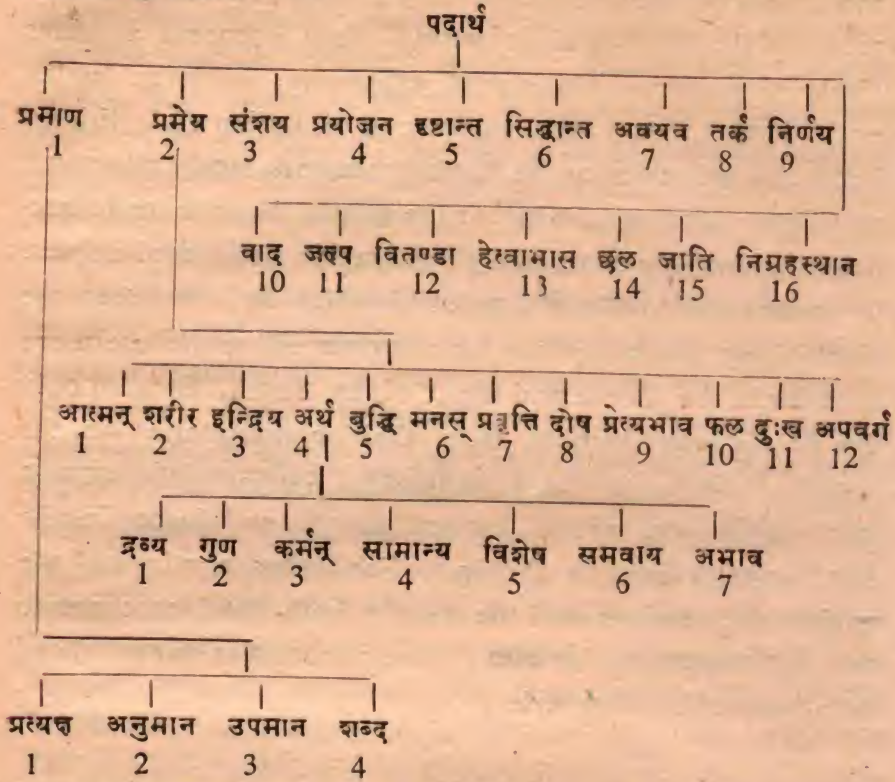 पदार्थ
प्रमाण प्रमेय संशय प्रयोजन दृष्टान्त सिद्धान्त अवयव तर्क निर्णय
1 2 3 4 5 6 7 8 9
वाद जल्प वितण्डा हेत्वाभास छल जाति निग्रहस्थान
10 11 12 13 14 15 16
आत्मन् शरीर इन्द्रिय अर्थ बुद्धि मनस् प्रवृत्ति दोष प्रेत्यभाव फल दुःख अपवर्ग
1 2 3 4 5 6 7 8 9 10 11 12
द्रव्य गुण कर्मन् सामान्य विशेष समवाय अभाव
1 2 3 4 5 6 7
प्रत्यक्ष अनुमान उपमान शब्द
1 2 3 4